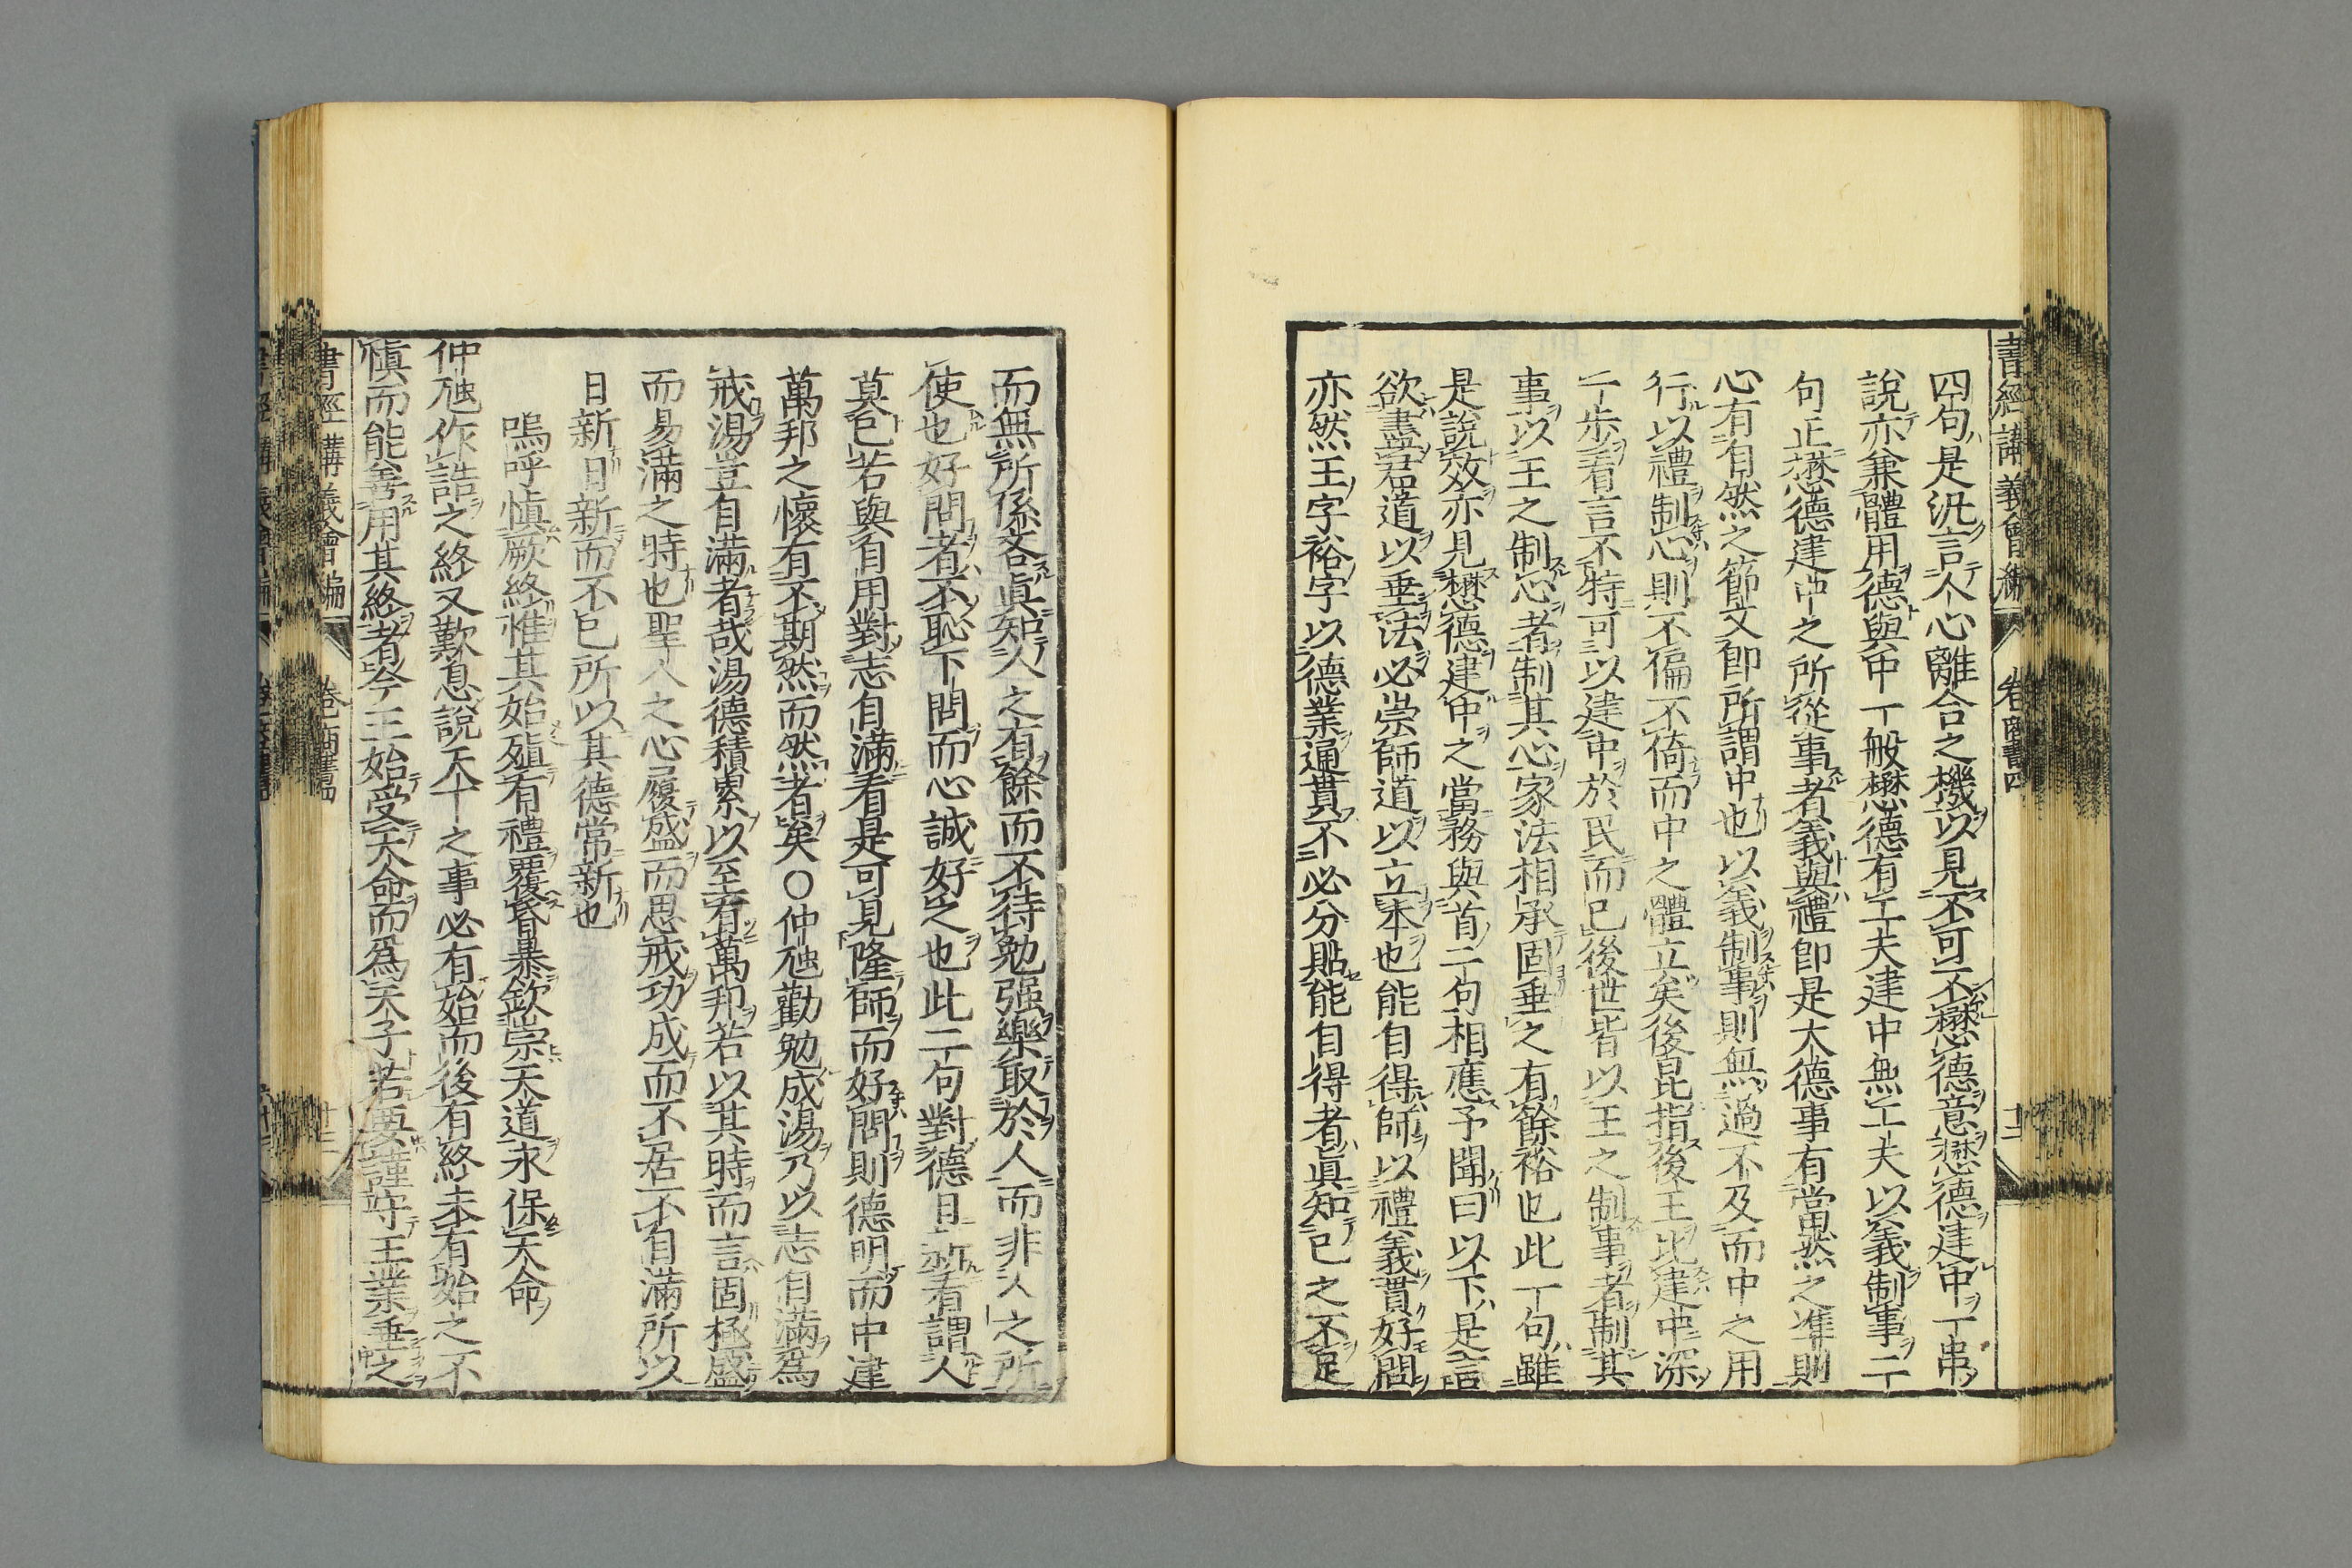 書經講義會編 卷 商書四 十二
四句是汎言人心離合之機以見不可不懋德意懋德建中一串
說亦兼體用德與中一般懋德有工夫建中無工夫以義制事二
句正懋德建中之所從事者義與禮即是大德事有當然之準則
心有自然之節文即所謂中也以義制事則無過不及而中之用
行以禮制心則不偏不倚而中之體立矣後昆指後王此建中深
一步看言不特可以建中於民而已後世皆以王之制事者制其
事以王之制心者制其心家法相承固垂之有餘裕也此一句雖
是說效亦見懋德建中之當務與首二句相應予聞曰以下是言
欲盡君道以垂法必崇師道以立本也能自得師以禮義貫好問
亦然王字裕字以德業通貫不必分貼能自得者真知己之不足
而無所係吝真知人之有餘而不待勉强樂取於人而非人之所
使也好問者不恥下問而心誠好之也此二句對德日新看謂人
莫已若與自用對志自滿看是可見隆師而好問則德明而中建
萬邦之懷有不期然而然者矣○仲虺勸勉成湯乃以志自滿爲
戒湯豈自滿者哉湯德積累以至有萬邦若以其時而言固極盛
而易滿之時也聖人之心履盛而思戒功成而不居不自滿所以
日新日新而不已所以其德常新也
嗚呼愼厥終惟其始殖有禮覆昏暴欽崇天道永保天命
仲虺作誥之終又歎息說天下之事必有始而後有終未有始之不
愼而能善用其終者今王始受天命而爲天子若要謹守王業垂之
書經講義會編 卷 商書四 十二